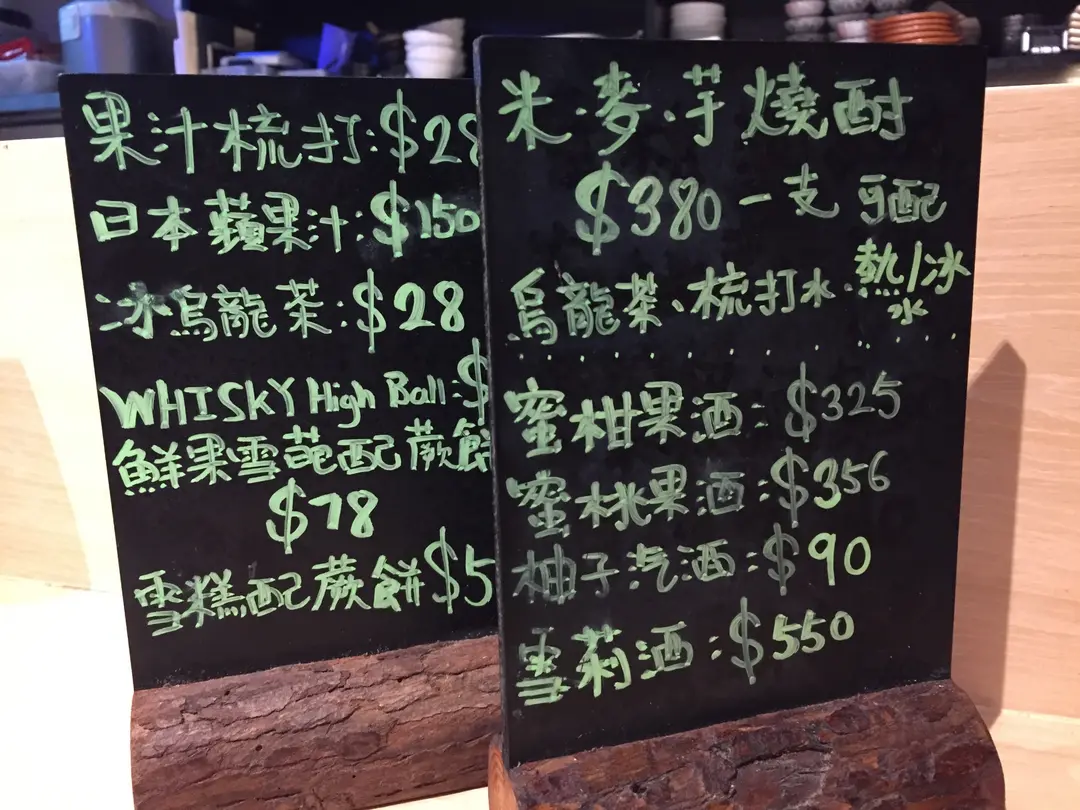 果汁梳打:$28
日本蘋果汁:$150
冰烏龍茶:$28
WHISKY High Ball:$
鮮果雪葩配蕨餅
$78
雪糕配蕨餅$5
米.麥.芋燒酎
$380一支 可配
烏龍茶、梳打水.熱/冰
水
蜜柑果酒:$325
蜜桃果酒:$356
柚子汽酒:$90
雪莉酒:$550